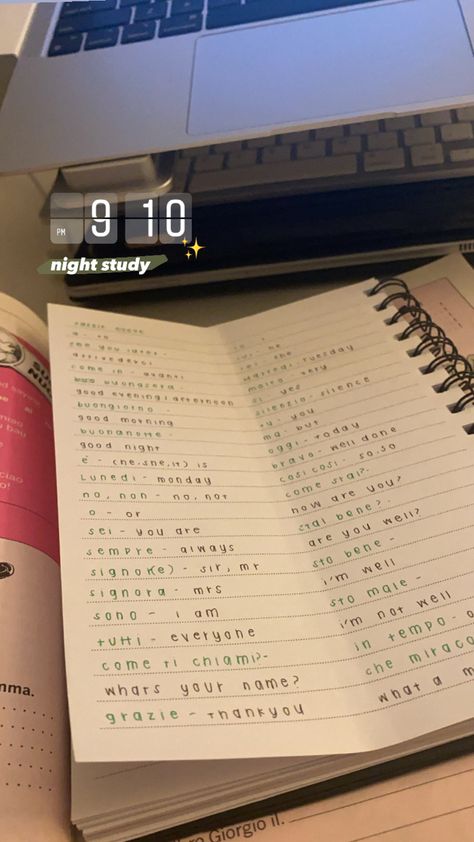 PM 9 10
night study
a - to
see you later -
arrivederci
come in - avanti
buonasera -
good evening/afternoon
buongiorno -
good morning
buonanotte -
good night
è - (he, she, it) is
Lunedì - monday
no, non - no, not
o - or
sei - you are
sempre - always
signor(e) - sir, mr
signora - mrs
sono - i am
tutti - everyone
come ti chiami?-
whats your name?
grazie - thankyou
martedì - tuesday
molto - very
si - yes
silenzio - silence
tu - you
ma - but
oggi - today
bravo - well done
cosi cosi - so, so
come stai?-
how are you?
stai bene? -
are you well?
sto bene -
i'm well
sto male -
i'm not well
in tempo -
che
what a
ciao
nma.
Giorgio il.